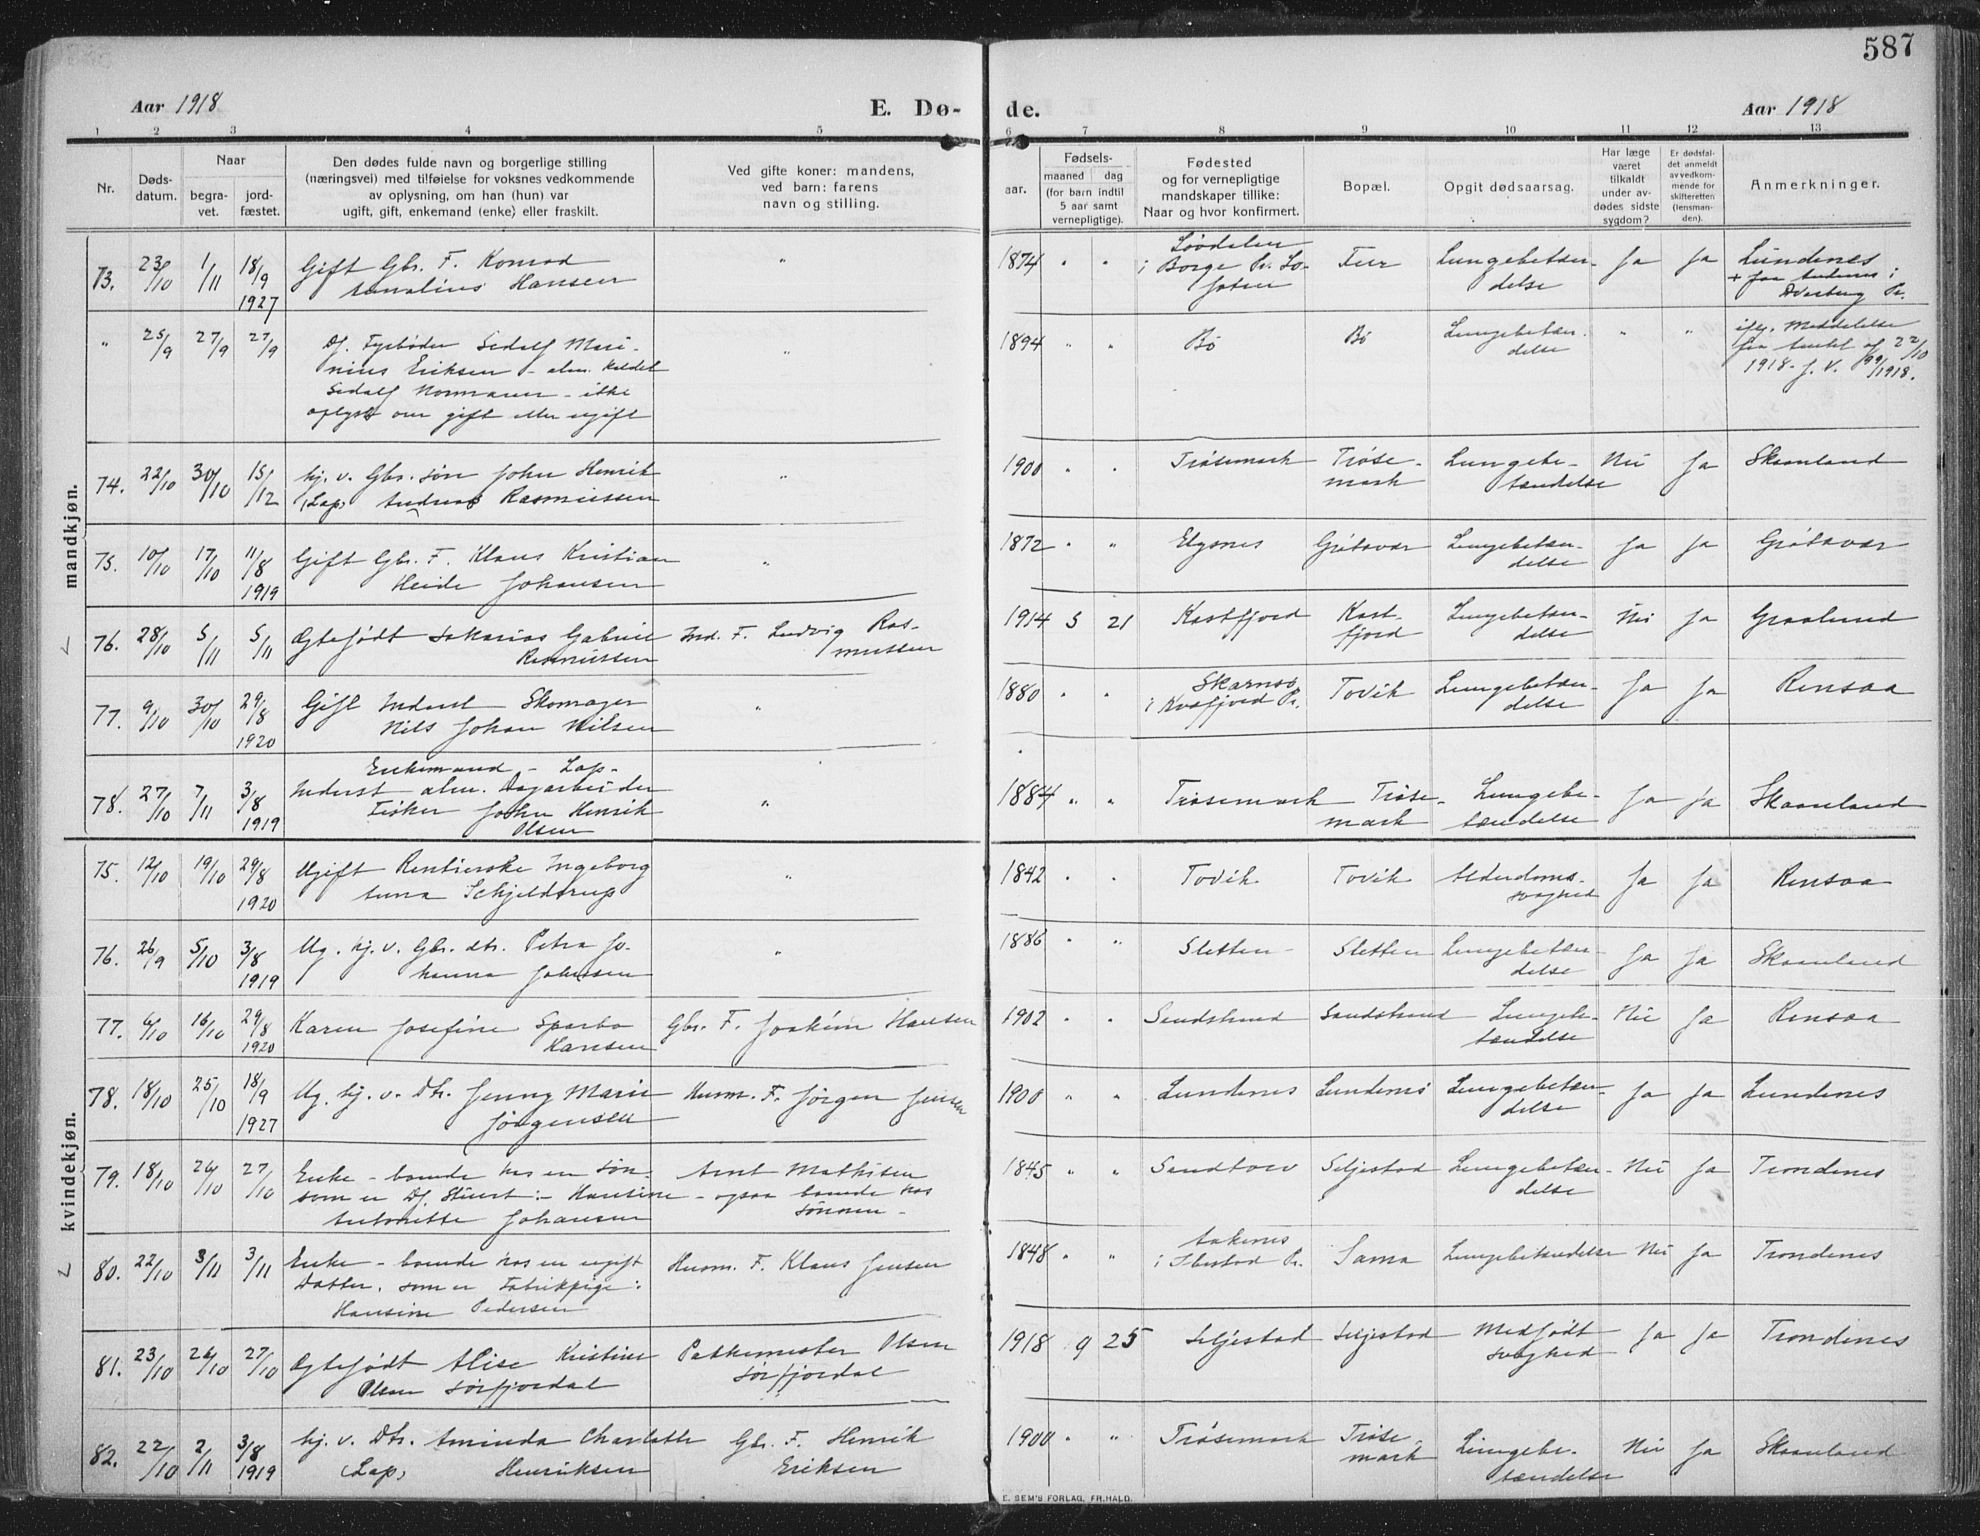 587
Aar 1918
E. Dø-
de.
Aar 1918
1 2 3 4 5 6 7 8 9 10 11 12 13
Nr.
Døds-
datum.
Naar
begra-
vet.
jord-
fæstet.
Den dødes fulde navn og borgerlige stilling
(næringsvei) med tilføielse for voksnes vedkommende
av oplysning, om han (hun) var
ugift, gift, enkemand (enke) eller fraskilt.
Ved gifte koner: mandens,
ved barn: farens
navn og stilling.
aar.
Fødsels-
maaned dag
(for barn indtil
5 aar samt
vernepligtige).
Fødested
og for vernepligtige
mandskaper tillike:
Naar og hvor konfirmert.
Bopæl.
Opgit dødsaarsag.
Har læge
været
tilkaldt
under av-
dødes sidste
sygdom?
Er dødsfal-
det anmeldt
av vedkom-
mende for
skifteretten
(lensman-
den).
Anmerkninger.
mandkjøn.
73. 23/10 1/11 18/9 1927 Gift Gbr. F. Konrad
Hansen " 1874 " " i Borge Pr. Lo-
foten Lungebetæn-
delse Ja Ja Lundenes
" 25/9 27/9 27/9 Df. Fyrbøder Sedolf Mari-
nius Eriksen - alm. kaldet
Sedolf Normann - ikke
oplyst om gift eller ugift " 1894 " " Bø Bø Lungebetæn-
delse " " ifg. Meddelelse
22/10
1918.
74. 22/10 30/10 15/12 hj. v. Gbr. søn John Henrik
(Lap) Andreas Rasmussen " 1900 " " Trøsemark Trøse-
mark Lungebe-
tændelse Nei Ja Skaanland
75. 10/10 17/10 11/8 1919 Gift Gbr. F. Klaus Kristian
Heide Johansen " 1872 " " Elgsnes Grøtavær Lungebetæn-
delse Ja Ja Grøtavær
76. 28/10 5/11 5/11 Ægtefødt Sakarias Gabriel
Rasmussen Ind. F. Ludvig Ras-
mussen 1914 5 21 Kastfjord Kast-
fjord Lungebetæn-
delse Nei Ja
77. 9/10 30/10 29/8 1920 Gift Inderst Skomager
Nils Johan Nilsen " 1880 " " i Kvæfjord Pr. Tovik Lungebetæn-
delse Ja Ja Rensaa
78. 27/10 7/11 3/8 1919 Enkemand - Lap-
Inderst alm. Dagarbeider
Fisker John Henrik
Olsen " 1884 " " Trøsemark Trøse-
mark Lungebe-
tændelse Ja Ja Skaanland
kvindekjøn.
75. 12/10 19/10 29/8 1920 Ugift Rentierske Ingeborg
Anna Schjelderup " 1842 " " Tovik Tovik Alderdoms-
svaghed Ja Ja Rensaa
76. 26/9 5/10 3/8 1919 Ug. hj. v. Gbr. dtr. Petra Jo-
hanna Johnsen " 1886 " " Sletten Sletten Lungebetæn-
delse Ja Ja Skaanland
77. 6/10 16/10 29/8 1920 Karen Josefine Sparbo
Hansen Gbr. F. Joakim Hansen 1902 " " Sandstrand Sandstrand Lungebe-
tændelse Nei Ja Rensaa
78. 18/10 25/10 18/9 1927 Ug. hj. v. Dtr. Jenny Marie
Jørgensen Husm. F. Jørgen Jensen 1900 " " Lundenes Lundenes Lungebetæn-
delse Ja Ja Lundenes
79. 18/10 26/10 27/10 Enke - boende hos en søn
som er Df. Stuert: - Hansine
Antonette Johansen Arnt Mathisen
- ogsaa boende hos
sønnen - 1845 " " Sandtorv Seljestad Lungebetæn-
delse Nei Ja Trondenes
80. 22/10 3/11 3/11 Enke - boende hos en ugift
Datter, som er Fabrikpige:
Hansine Pedersen Husm. F. Klaus Jensen 1848 " " Aakenes
i Ibestad Pr. Sama Lungebetændelse Nei Ja Trondenes
81. 23/10 26/10 27/10 Ægtefødt Alise Kristine
Olsen Sørfjordal Pakkemester Olsen
Sørfjordal 1918 9 25 Seljestad Seljestad Medfødt
svaghed Ja Ja Trondenes
82. 22/10 2/11 3/8 1919 hj. v. Dtr. Aminda Charlotte
(Lap) Henriksen Gbr. F. Henrik
Eriksen 1900 " " Trøsemark Trøse-
mark Lungebe-
tændelse Nei Ja Skaanland
E. SEM'S FORLAG, FR.HALD.